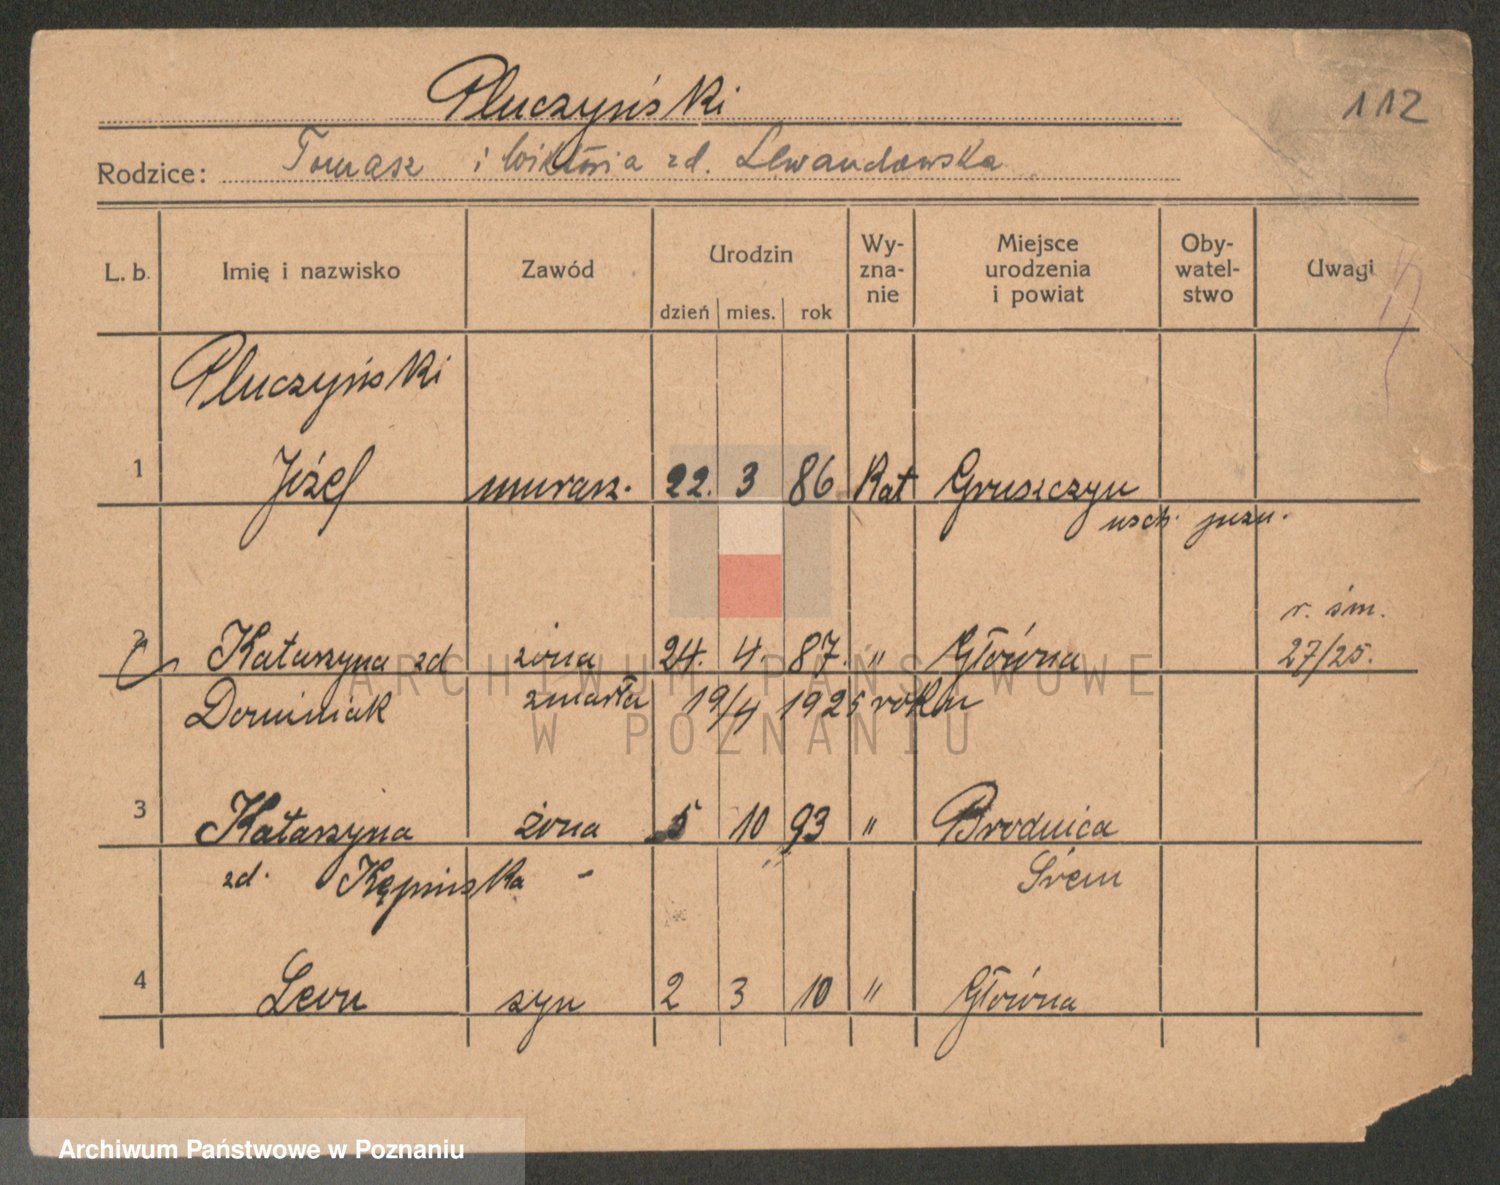 Pluczyński
112
Rodzice: Tomasz i Wiktoria zd. Lewandowska
L. b. Imię i nazwisko Zawód Urodzin dzień mies. rok Wy-zna-nie Miejsce urodzenia i powiat Oby-watel-stwo Uwagi
Pluczyński
1 Józef murarz. 22. 3 86 Kat Gruszczyn
wsch. pozn.
r. śm.
2 Katarzyna zd żona 24. 4. 87. " Główna 27/25.
Dominiak zmarła 19/4 1925 roku
3 Katarzyna żona 5 10 93 " Brodnica
zd. Kępińska - Śrem
4 Leon syn 2 3 10 " Główna
ARCHIWUM PAŃSTWOWE
W POZNANIU
Archiwum Państwowe w Poznaniu